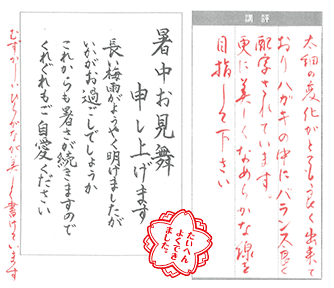 講評
太細の変化がとてもよく出来て
おりハガキの中にバランス良く
配字されています。
更に美しくなめらかな線を
目指して下さい
暑中お見舞
申し上げます
長い梅雨がようやく明けましたが
いかがお過ごしでしょうか
これからも暑さが続きますので
くれぐれもご自愛ください
むずかしいひらがなが美しく書けています
たいへん
よくでき
ました。